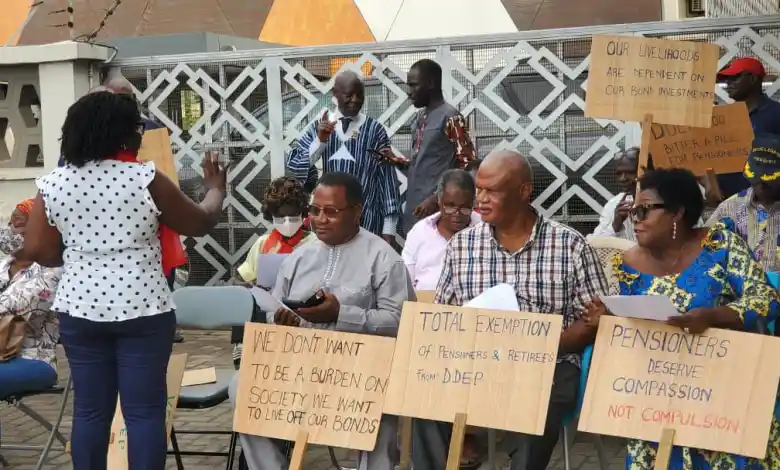 OUR LIVELIHOODS
ARE DEPENDENT ON
OUR BOND INVESTMENTS
BITTER A PILL
FOR PENSIONERS
WE DON'T WANT
TO BE A BURDEN ON
SOCIETY WE WANT
TO LIVE OFF OUR BONDS
TOTAL EXEMPTION
OF PENSIONERS & RETIREES
FROM DDEP
PENSIONERS
DESERVE
COMPASSION
NOT COMPULSION